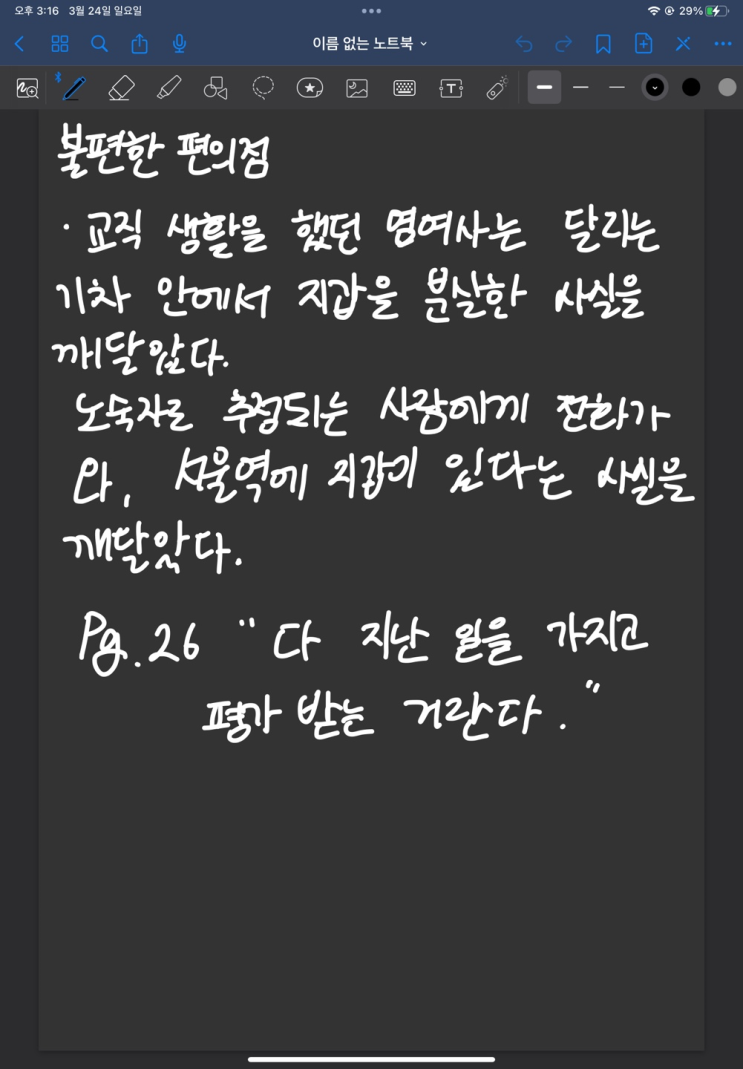 오후 3:16 3월 24일 일요일
29%
이름 없는 노트북
불편한 편의점
· 교직 생활을 했던 염여사는 달리는
기차 안에서 지갑을 분실한 사실을
깨달았다.
노숙자로 추정되는 사람에게 전화가
와, 서울역에 지갑이 있다는 사실을
깨달았다.
Pg.26 "다 지난 일을 가지고
평가 받는 거란다."